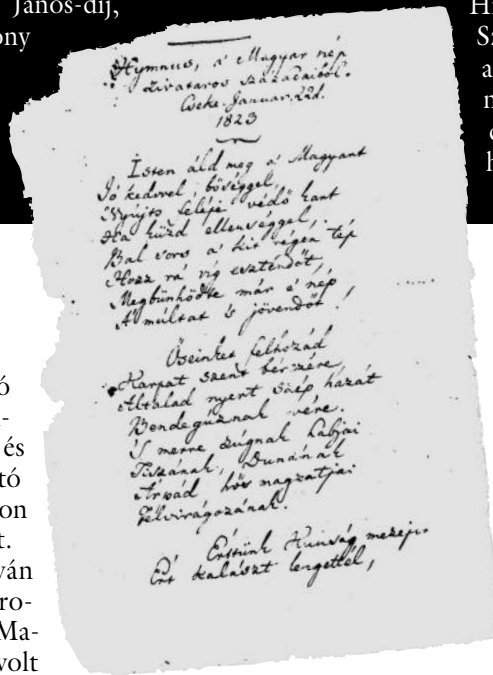 János-díj,
ony
Hymnus, a' Magyar nép
zivataros századaiból.
Cseke. Januar. 22d.
1823
Isten áld meg a' Magyart
Jó kedvvel, bőséggel,
Nyújts feléje védő kart
Ha küzd ellenséggel,
Bal sors a' kit régen tép
Hozz rá víg esztendőt,
Megbünhödte már e' nép
A' múltat 's jövendőt!
Őseinket felhozád
Kárpát szent bérczére,
Általad nyert szép hazát
Bendegúznak vére.
'S merre zúgnak habjai
Tiszának, Dunának
Árpád hős magzatjai
Felvirágozának.
Értünk Kunság mezejin
Ért kalászt lengettél,
Sz
a
h
ó
-
és
tó
on
t.
ván
ro-
Ma-
volt